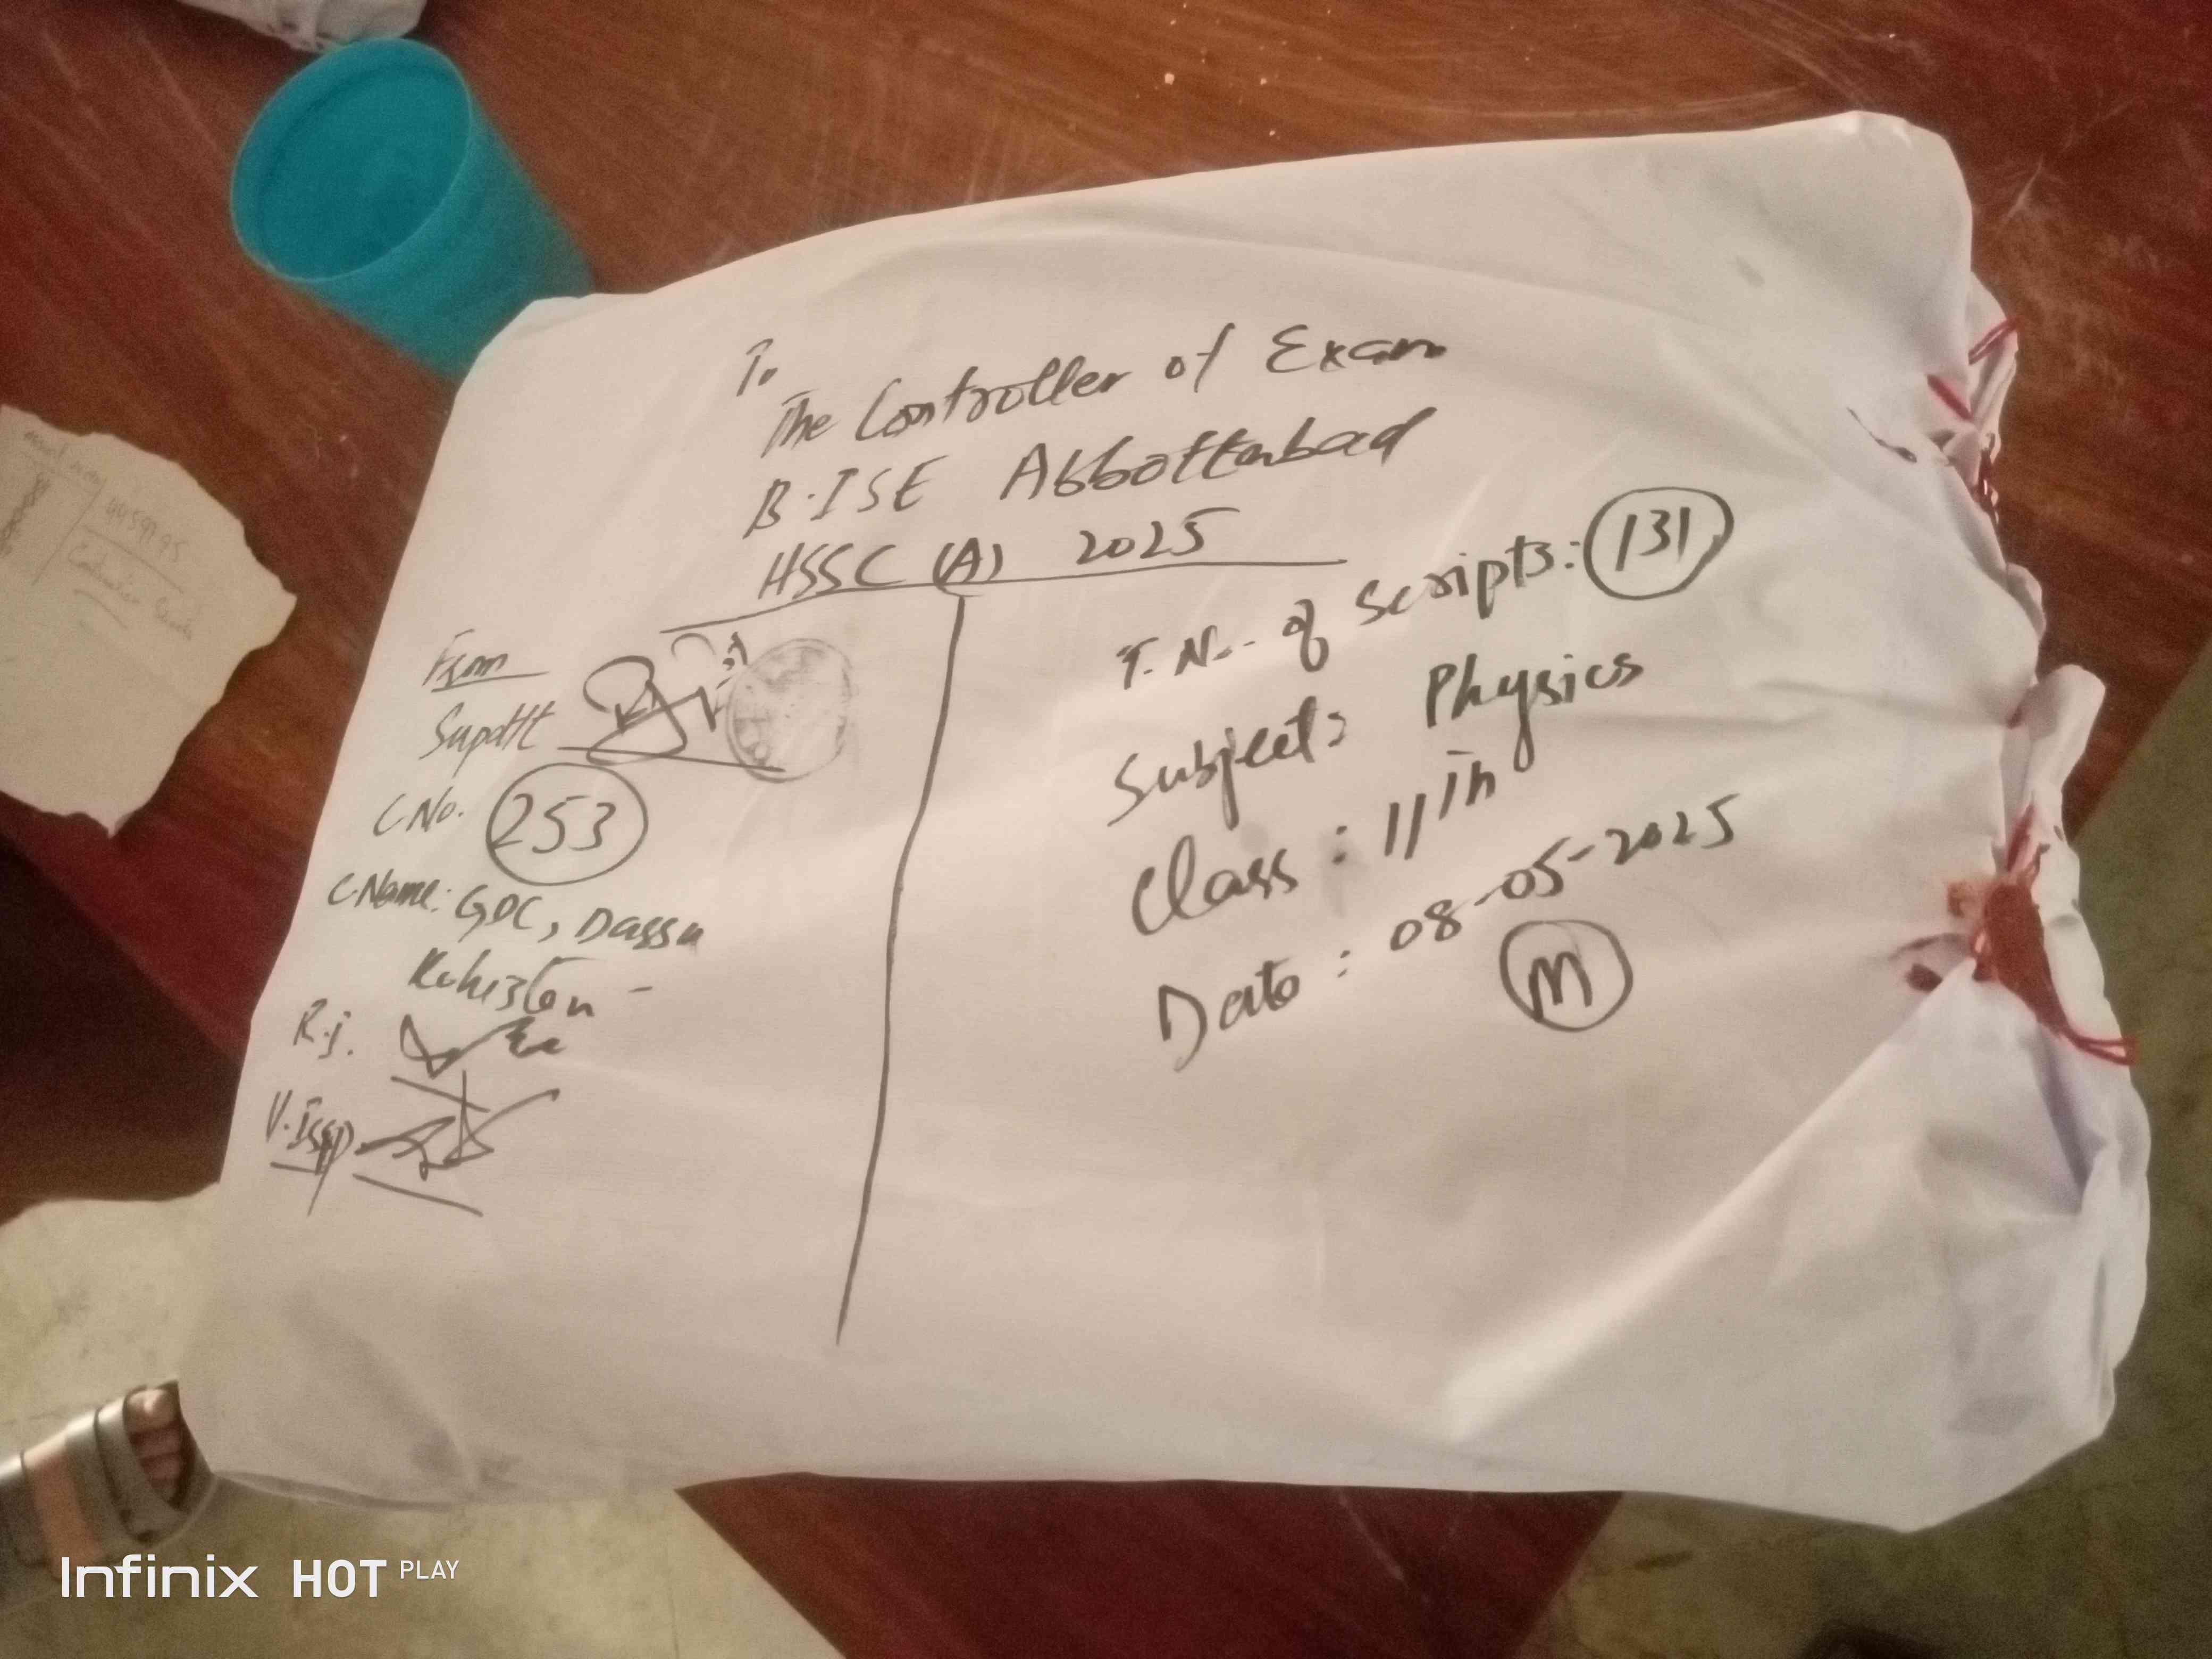 To
The Controller of Exam
B.ISE Abbottabad
HSSC (A) 2025
From
Supdtt
C No. 253
C Name: GDC, Dassu
Kohistan -
R.i.
V. Issp
T. No. of Scripts: 131
Subject: Physics
Class: 11th
Date: 08-05-2025
M
Infinix HOT PLAY